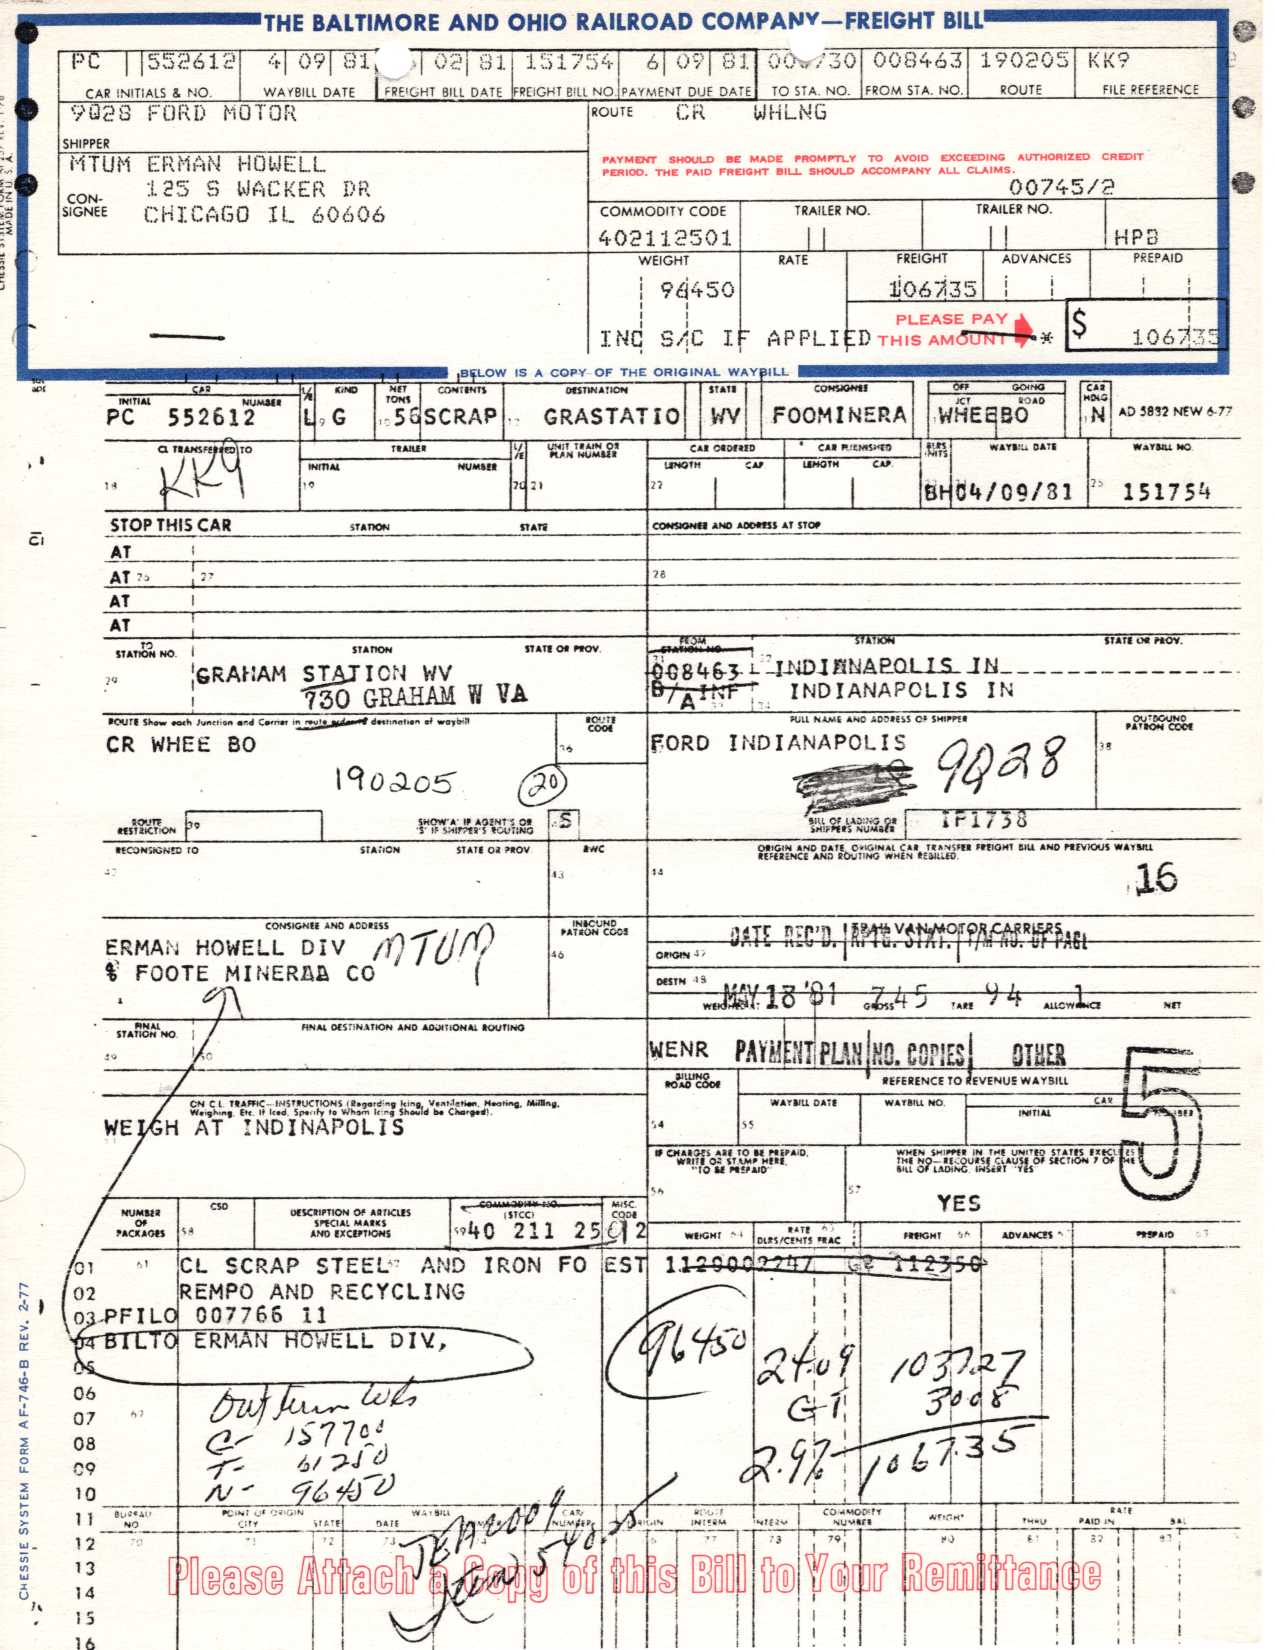 THE BALTIMORE AND OHIO RAILROAD COMPANY—FREIGHT BILL
PC 552612 4 09 81 02 81 151754 6 09 81 008463 190205 KK9
CAR INITIALS & NO. WAYBILL DATE FREIGHT BILL DATE FREIGHT BILL NO. PAYMENT DUE DATE TO STA. NO. FROM STA. NO. ROUTE FILE REFERENCE
9Q28 FORD MOTOR
SHIPPER
ROUTE CR WHLNG
MTUM ERMAN HOWELL
125 S WACKER DR
CON-SIGNEE CHICAGO IL 60606
PAYMENT SHOULD BE MADE PROMPTLY TO AVOID EXCEEDING AUTHORIZED CREDIT
PERIOD. THE PAID FREIGHT BILL SHOULD ACCOMPANY ALL CLAIMS.
00745/2
COMMODITY CODE TRAILER NO. TRAILER NO.
402112501 HPB
WEIGHT RATE FREIGHT ADVANCES PREPAID
96450 106735
INC S/C IF APPLIED PLEASE PAY THIS AMOUNT * $ 106735
BELOW IS A COPY OF THE ORIGINAL WAYBILL
CAR INITIAL NUMBER L/E KIND NET TONS CONTENTS DESTINATION STATE CONSIGNEE OFF JCT GOING ROAD CAR HDLG
PC 552612 L G 56 SCRAP GRASTATIO WV FOOMINERA WHEEBO N AD 5832 NEW 6-77
CL TRANSFERRED TO TRAILER INITIAL NUMBER L/E UNIT TRAIN OR PLAN NUMBER CAR ORDERED LENGTH CAP. CAR FURNISHED LENGTH CAP. WAYBILL DATE WAYBILL NO.
KK9 18 19 20 21 22 BH 04/09/81 25 151754
STOP THIS CAR STATION STATE CONSIGNEE AND ADDRESS AT STOP
AT
AT 26 27 28
AT
AT
TO STATION NO. STATION STATE OR PROV. FROM STATION NO. STATION STATE OR PROV.
29 GRAHAM STATION WV 008463 INDIANAPOLIS IN
730 GRAHAM W VA B/A INF INDIANAPOLIS IN
ROUTE Show each Junction and Carrier in route order to destination of waybill ROUTE CODE FULL NAME AND ADDRESS OF SHIPPER OUTBOUND PATRON CODE
CR WHEE BO 36 FORD INDIANAPOLIS 38
190205 20 9Q28
ROUTE RESTRICTION 39 SHOW 'A' IF AGENT'S OR 'S' IF SHIPPER'S ROUTING S BILL OF LADING OR SHIPPERS NUMBER IF1738
RECONSIGNED TO STATION STATE OR PROV RWC ORIGIN AND DATE, ORIGINAL CAR, TRANSFER FREIGHT BILL AND PREVIOUS WAYBILL
REFERENCE AND ROUTING WHEN REBILLED.
42 43 44 16
CONSIGNEE AND ADDRESS INBOUND PATRON CODE TRAIL VAN MOTOR CARRIERS
ERMAN HOWELL DIV MTUM 46 DATE REC'D. RPTG. STAT. T/M NO. OF PAGE
% FOOTE MINERAL CO ORIGIN 47
DESTN 48
MAY 18 '81 745 94 1
WEIGHED AT GROSS TARE ALLOWANCE NET
FINAL STATION NO. FINAL DESTINATION AND ADDITIONAL ROUTING
49 50 WENR PAYMENT PLAN NO. COPIES OTHER
BILLING ROAD CODE REFERENCE TO REVENUE WAYBILL 5
ON C.L. TRAFFIC—INSTRUCTIONS (Regarding Icing, Ventilation, Heating, Milling,
Weighing, Etc. If Iced, Specify to Whom Icing Should be Charged).
WAYBILL DATE WAYBILL NO. CAR INITIAL NUMBER
WEIGH AT INDINAPOLIS 54 55
IF CHARGES ARE TO BE PREPAID, WRITE OR STAMP HERE, "TO BE PREPAID"
WHEN SHIPPER IN THE UNITED STATES EXECUTES THE NO—RECOURSE CLAUSE OF SECTION 7 OF THE BILL OF LADING, INSERT "YES"
56 57 YES
NUMBER OF PACKAGES CSD 58 DESCRIPTION OF ARTICLES SPECIAL MARKS AND EXCEPTIONS COMMODITY NO. (STCC) MISC. CODE
59 40 211 25 0 2 WEIGHT 64 RATE DLRS/CENTS FRAC FREIGHT 66 ADVANCES PREPAID
01 61 CL SCRAP STEEL AND IRON FO EST 1120002247 GR 112350
02 REMPO AND RECYCLING
03 PFILO 007766 11
04 BILTO ERMAN HOWELL DIV, 96450
05 24.09 1037.27
06 GT 30.08
07 2.9% 1067.35
08 G- 157700
09 T- 61250
10 N- 96450
11 BUREAU NO POINT OF ORIGIN CITY STATE WAYBILL DATE CAR NUMBER ORIGIN ROUTE INTERM INTERM COMMODITY NUMBER WEIGHT THRU RATE PAID IN BAL
12
13 Please Attach a Copy of this Bill to Your Remittance
14
15
16
CHESSIE SYSTEM FORM AF-746-B REV. 2-77
MADE IN U.S.A.